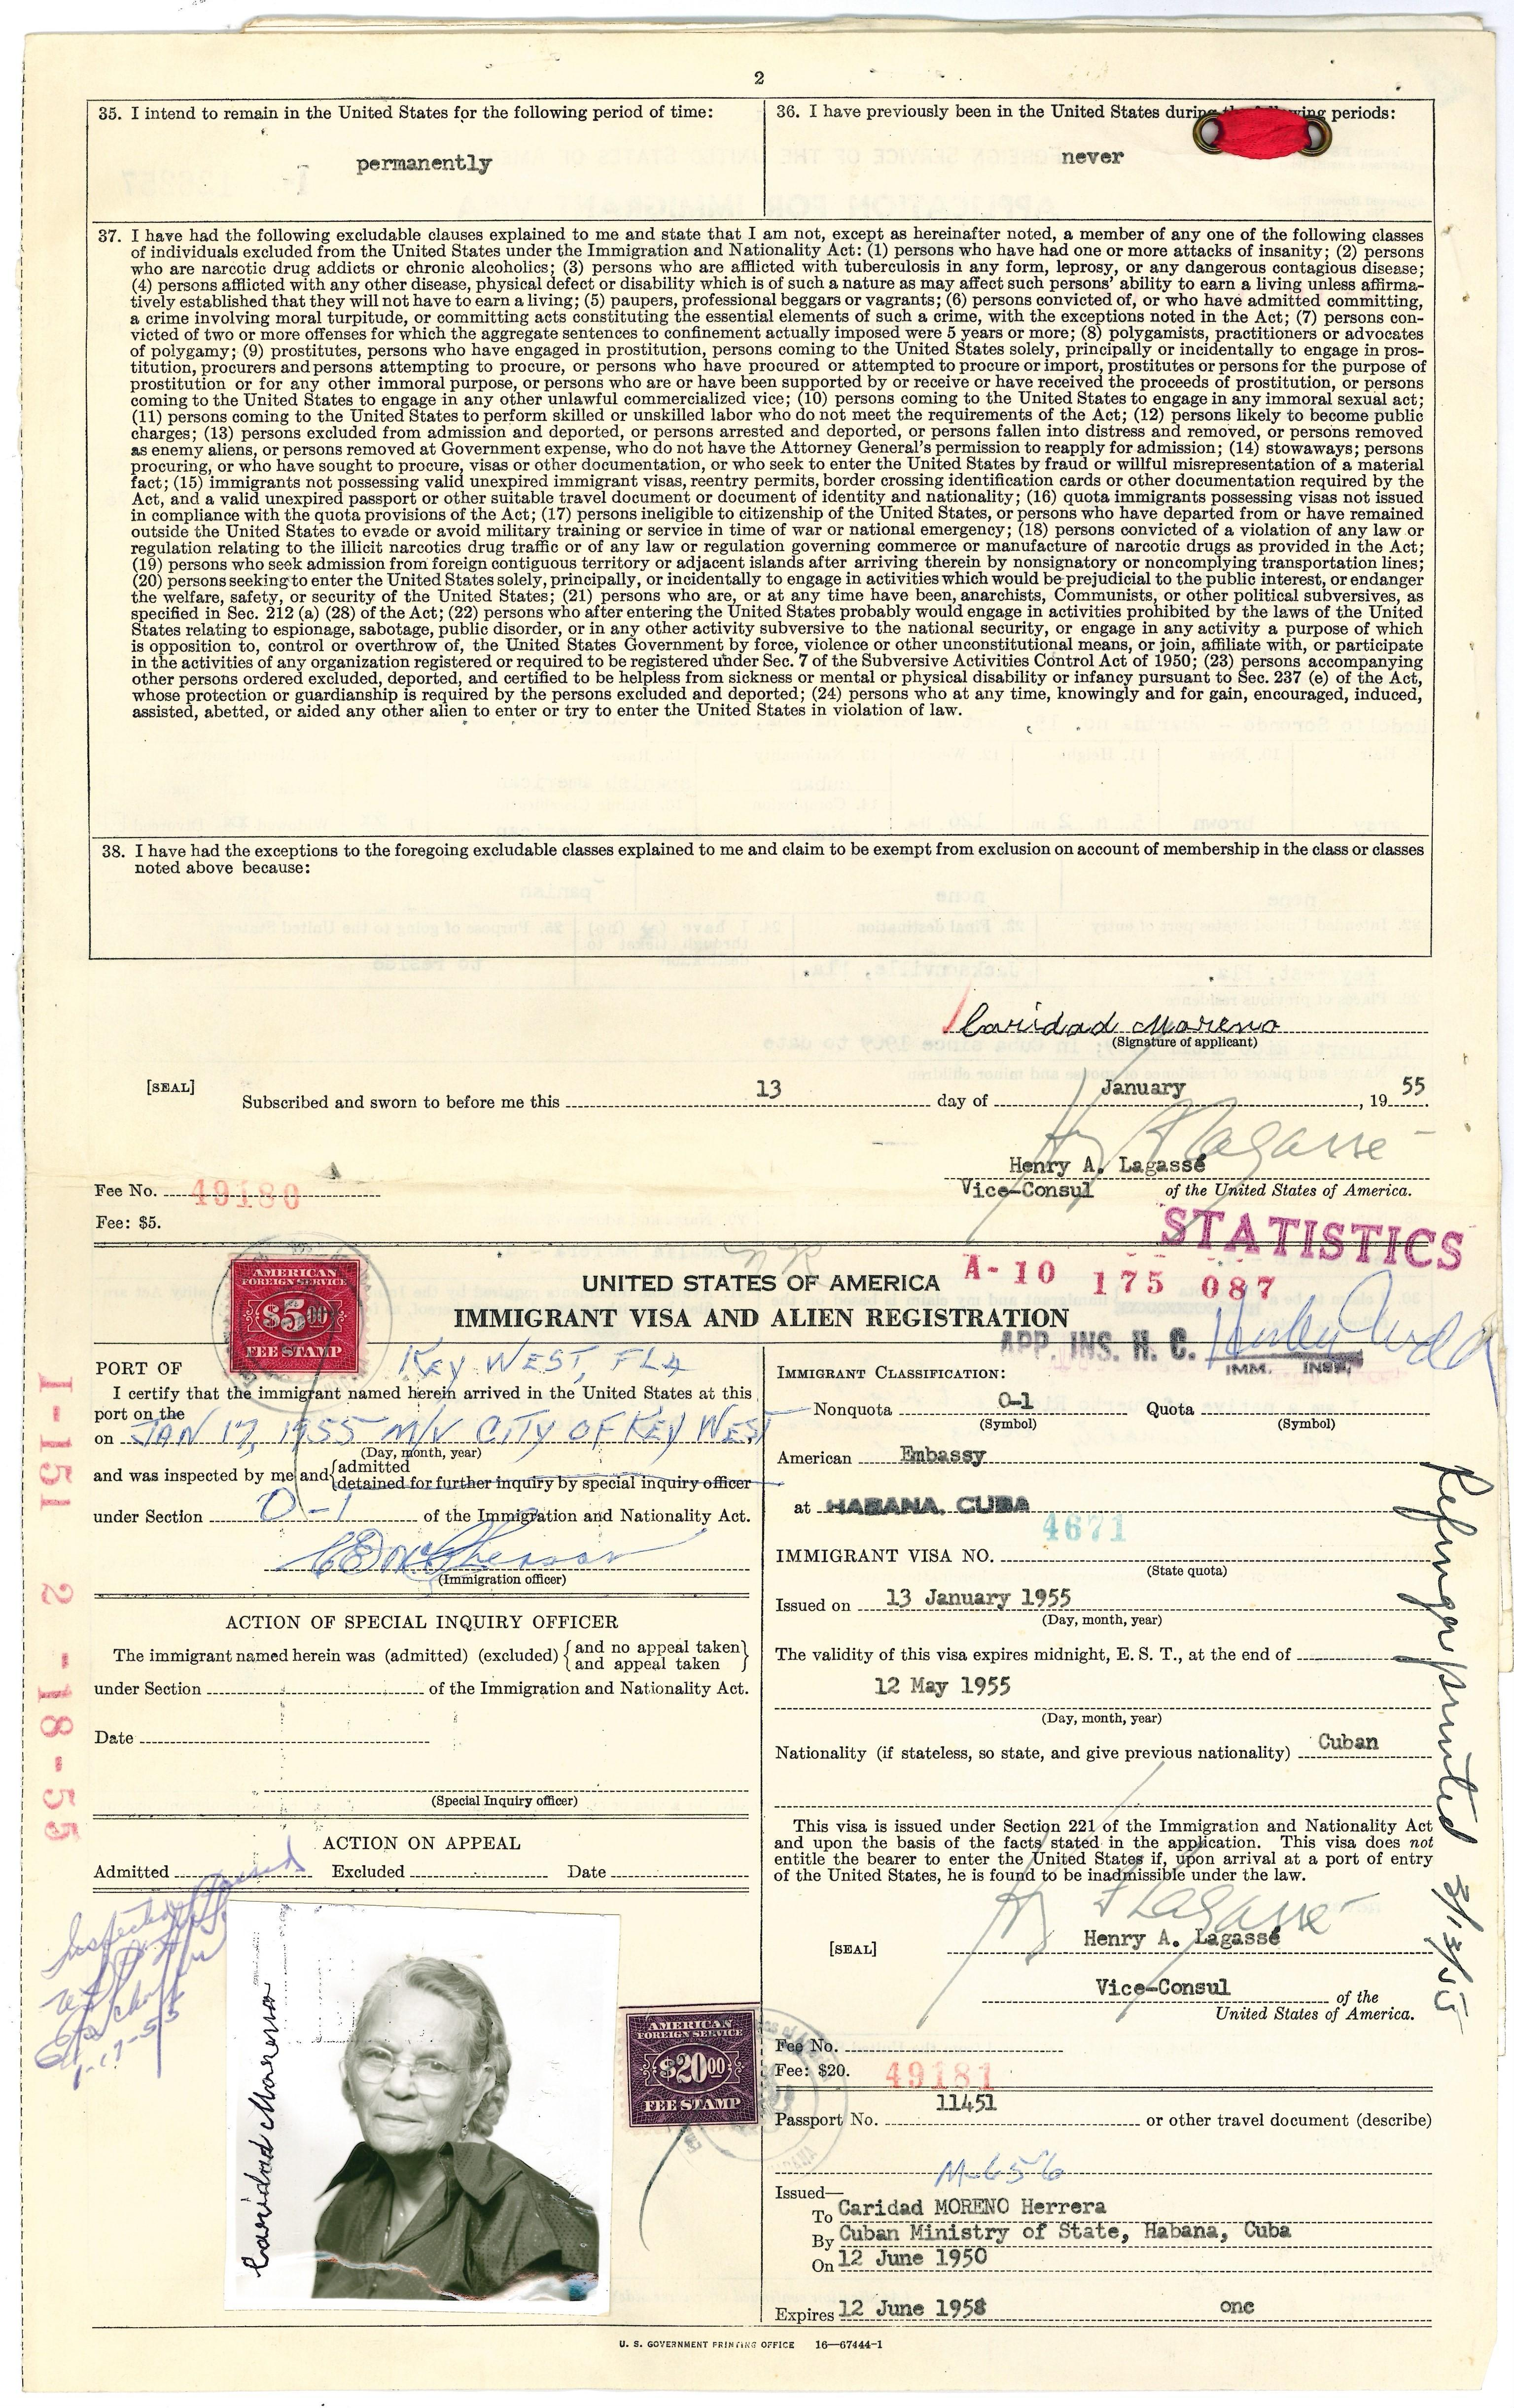 2
35. I intend to remain in the United States for the following period of time:
permanently
36. I have previously been in the United States during the following periods:
never
37. I have had the following excludable clauses explained to me and state that I am not, except as hereinafter noted, a member of any one of the following classes
of individuals excluded from the United States under the Immigration and Nationality Act: (1) persons who have had one or more attacks of insanity; (2) persons
who are narcotic drug addicts or chronic alcoholics; (3) persons who are afflicted with tuberculosis in any form, leprosy, or any dangerous contagious disease;
(4) persons afflicted with any other disease, physical defect or disability which is of such a nature as may affect such persons' ability to earn a living unless affirma-
tively established that they will not have to earn a living; (5) paupers, professional beggars or vagrants; (6) persons convicted of, or who have admitted committing,
a crime involving moral turpitude, or committing acts constituting the essential elements of such a crime, with the exceptions noted in the Act; (7) persons con-
victed of two or more offenses for which the aggregate sentences to confinement actually imposed were 5 years or more; (8) polygamists, practitioners or advocates
of polygamy; (9) prostitutes, persons who have engaged in prostitution, persons coming to the United States solely, principally or incidentally to engage in pros-
titution, procurers and persons attempting to procure, or persons who have procured or attempted to procure or import, prostitutes or persons for the purpose of
prostitution or for any other immoral purpose, or persons who are or have been supported by or receive or have received the proceeds of prostitution, or persons
coming to the United States to engage in any other unlawful commercialized vice; (10) persons coming to the United States to engage in any immoral sexual act;
(11) persons coming to the United States to perform skilled or unskilled labor who do not meet the requirements of the Act; (12) persons likely to become public
charges; (13) persons excluded from admission and deported, or persons arrested and deported, or persons fallen into distress and removed, or persons removed
as enemy aliens, or persons removed at Government expense, who do not have the Attorney General's permission to reapply for admission; (14) stowaways; persons
procuring, or who have sought to procure, visas or other documentation, or who seek to enter the United States by fraud or willful misrepresentation of a material
fact; (15) immigrants not possessing valid unexpired immigrant visas, reentry permits, border crossing identification cards or other documentation required by the
Act, and a valid unexpired passport or other suitable travel document or document of identity and nationality; (16) quota immigrants possessing visas not issued
in compliance with the quota provisions of the Act; (17) persons ineligible to citizenship of the United States, or persons who have departed from or have remained
outside the United States to evade or avoid military training or service in time of war or national emergency; (18) persons convicted of a violation of any law or
regulation relating to the illicit narcotics drug traffic or of any law or regulation governing commerce or manufacture of narcotic drugs as provided in the Act;
(19) persons who seek admission from foreign contiguous territory or adjacent islands after arriving therein by nonsignatory or noncomplying transportation lines;
(20) persons seeking to enter the United States solely, principally, or incidentally to engage in activities which would be prejudicial to the public interest, or endanger
the welfare, safety, or security of the United States; (21) persons who are, or at any time have been, anarchists, Communists, or other political subversives, as
specified in Sec. 212 (a) (28) of the Act; (22) persons who after entering the United States probably would engage in activities prohibited by the laws of the United
States relating to espionage, sabotage, public disorder, or in any other activity subversive to the national security, or engage in any activity a purpose of which
is opposition to, control or overthrow of, the United States Government by force, violence or other unconstitutional means, or join, affiliate with, or participate
in the activities of any organization registered or required to be registered under Sec. 7 of the Subversive Activities Control Act of 1950; (23) persons accompanying
other persons ordered excluded, deported, and certified to be helpless from sickness or mental or physical disability or infancy pursuant to Sec. 237 (e) of the Act,
whose protection or guardianship is required by the persons excluded and deported; (24) persons who at any time, knowingly and for gain, encouraged, induced,
assisted, abetted, or aided any other alien to enter or try to enter the United States in violation of law.
38. I have had the exceptions to the foregoing excludable classes explained to me and claim to be exempt from exclusion on account of membership in the class or classes
noted above because:
Caridad Moreno
(Signature of applicant)
[SEAL]
Subscribed and sworn to before me this 13 day of January, 1955
Henry A. Lagassé
Vice-Consul of the United States of America.
Fee No. 49180
Fee: $5.
STATISTICS
AMERICAN
FOREIGN SERVICE
$5.00
FEE STAMP
UNITED STATES OF AMERICA
A-10 175 087
IMMIGRANT VISA AND ALIEN REGISTRATION
APP. INS. H. C.
IMM. INSP.
PORT OF KEY WEST, FLA
I certify that the immigrant named herein arrived in the United States at this
port on the
on JAN 17, 1955 M/V CITY OF KEY WEST
(Day, month, year)
and was inspected by me and admitted
detained for further inquiry by special inquiry officer
under Section O-1 of the Immigration and Nationality Act.
(Immigration officer)
ACTION OF SPECIAL INQUIRY OFFICER
The immigrant named herein was (admitted) (excluded) {and no appeal taken}
{and appeal taken}
under Section of the Immigration and Nationality Act.
Date
(Special Inquiry officer)
ACTION ON APPEAL
Admitted Excluded Date
1-151 2-18-55
1-17-55
Caridad Moreno
AMERICAN
FOREIGN SERVICE
$20.00
FEE STAMP
IMMIGRANT CLASSIFICATION:
Nonquota O-1 Quota
(Symbol) (Symbol)
American Embassy
at HABANA, CUBA
4671
IMMIGRANT VISA NO.
(State quota)
Issued on 13 January 1955
(Day, month, year)
The validity of this visa expires midnight, E. S. T., at the end of
12 May 1955
(Day, month, year)
Nationality (if stateless, so state, and give previous nationality) Cuban
This visa is issued under Section 221 of the Immigration and Nationality Act
and upon the basis of the facts stated in the application. This visa does not
entitle the bearer to enter the United States if, upon arrival at a port of entry
of the United States, he is found to be inadmissible under the law.
[SEAL]
Henry A. Lagassé
Vice-Consul of the
United States of America.
Fee No.
Fee: $20. 49181
Passport No. 11451 or other travel document (describe)
M-656
Issued—
To Caridad MORENO Herrera
By Cuban Ministry of State, Habana, Cuba
On 12 June 1950
Expires 12 June 1958 onc
U. S. GOVERNMENT PRINTING OFFICE 16—67444-1